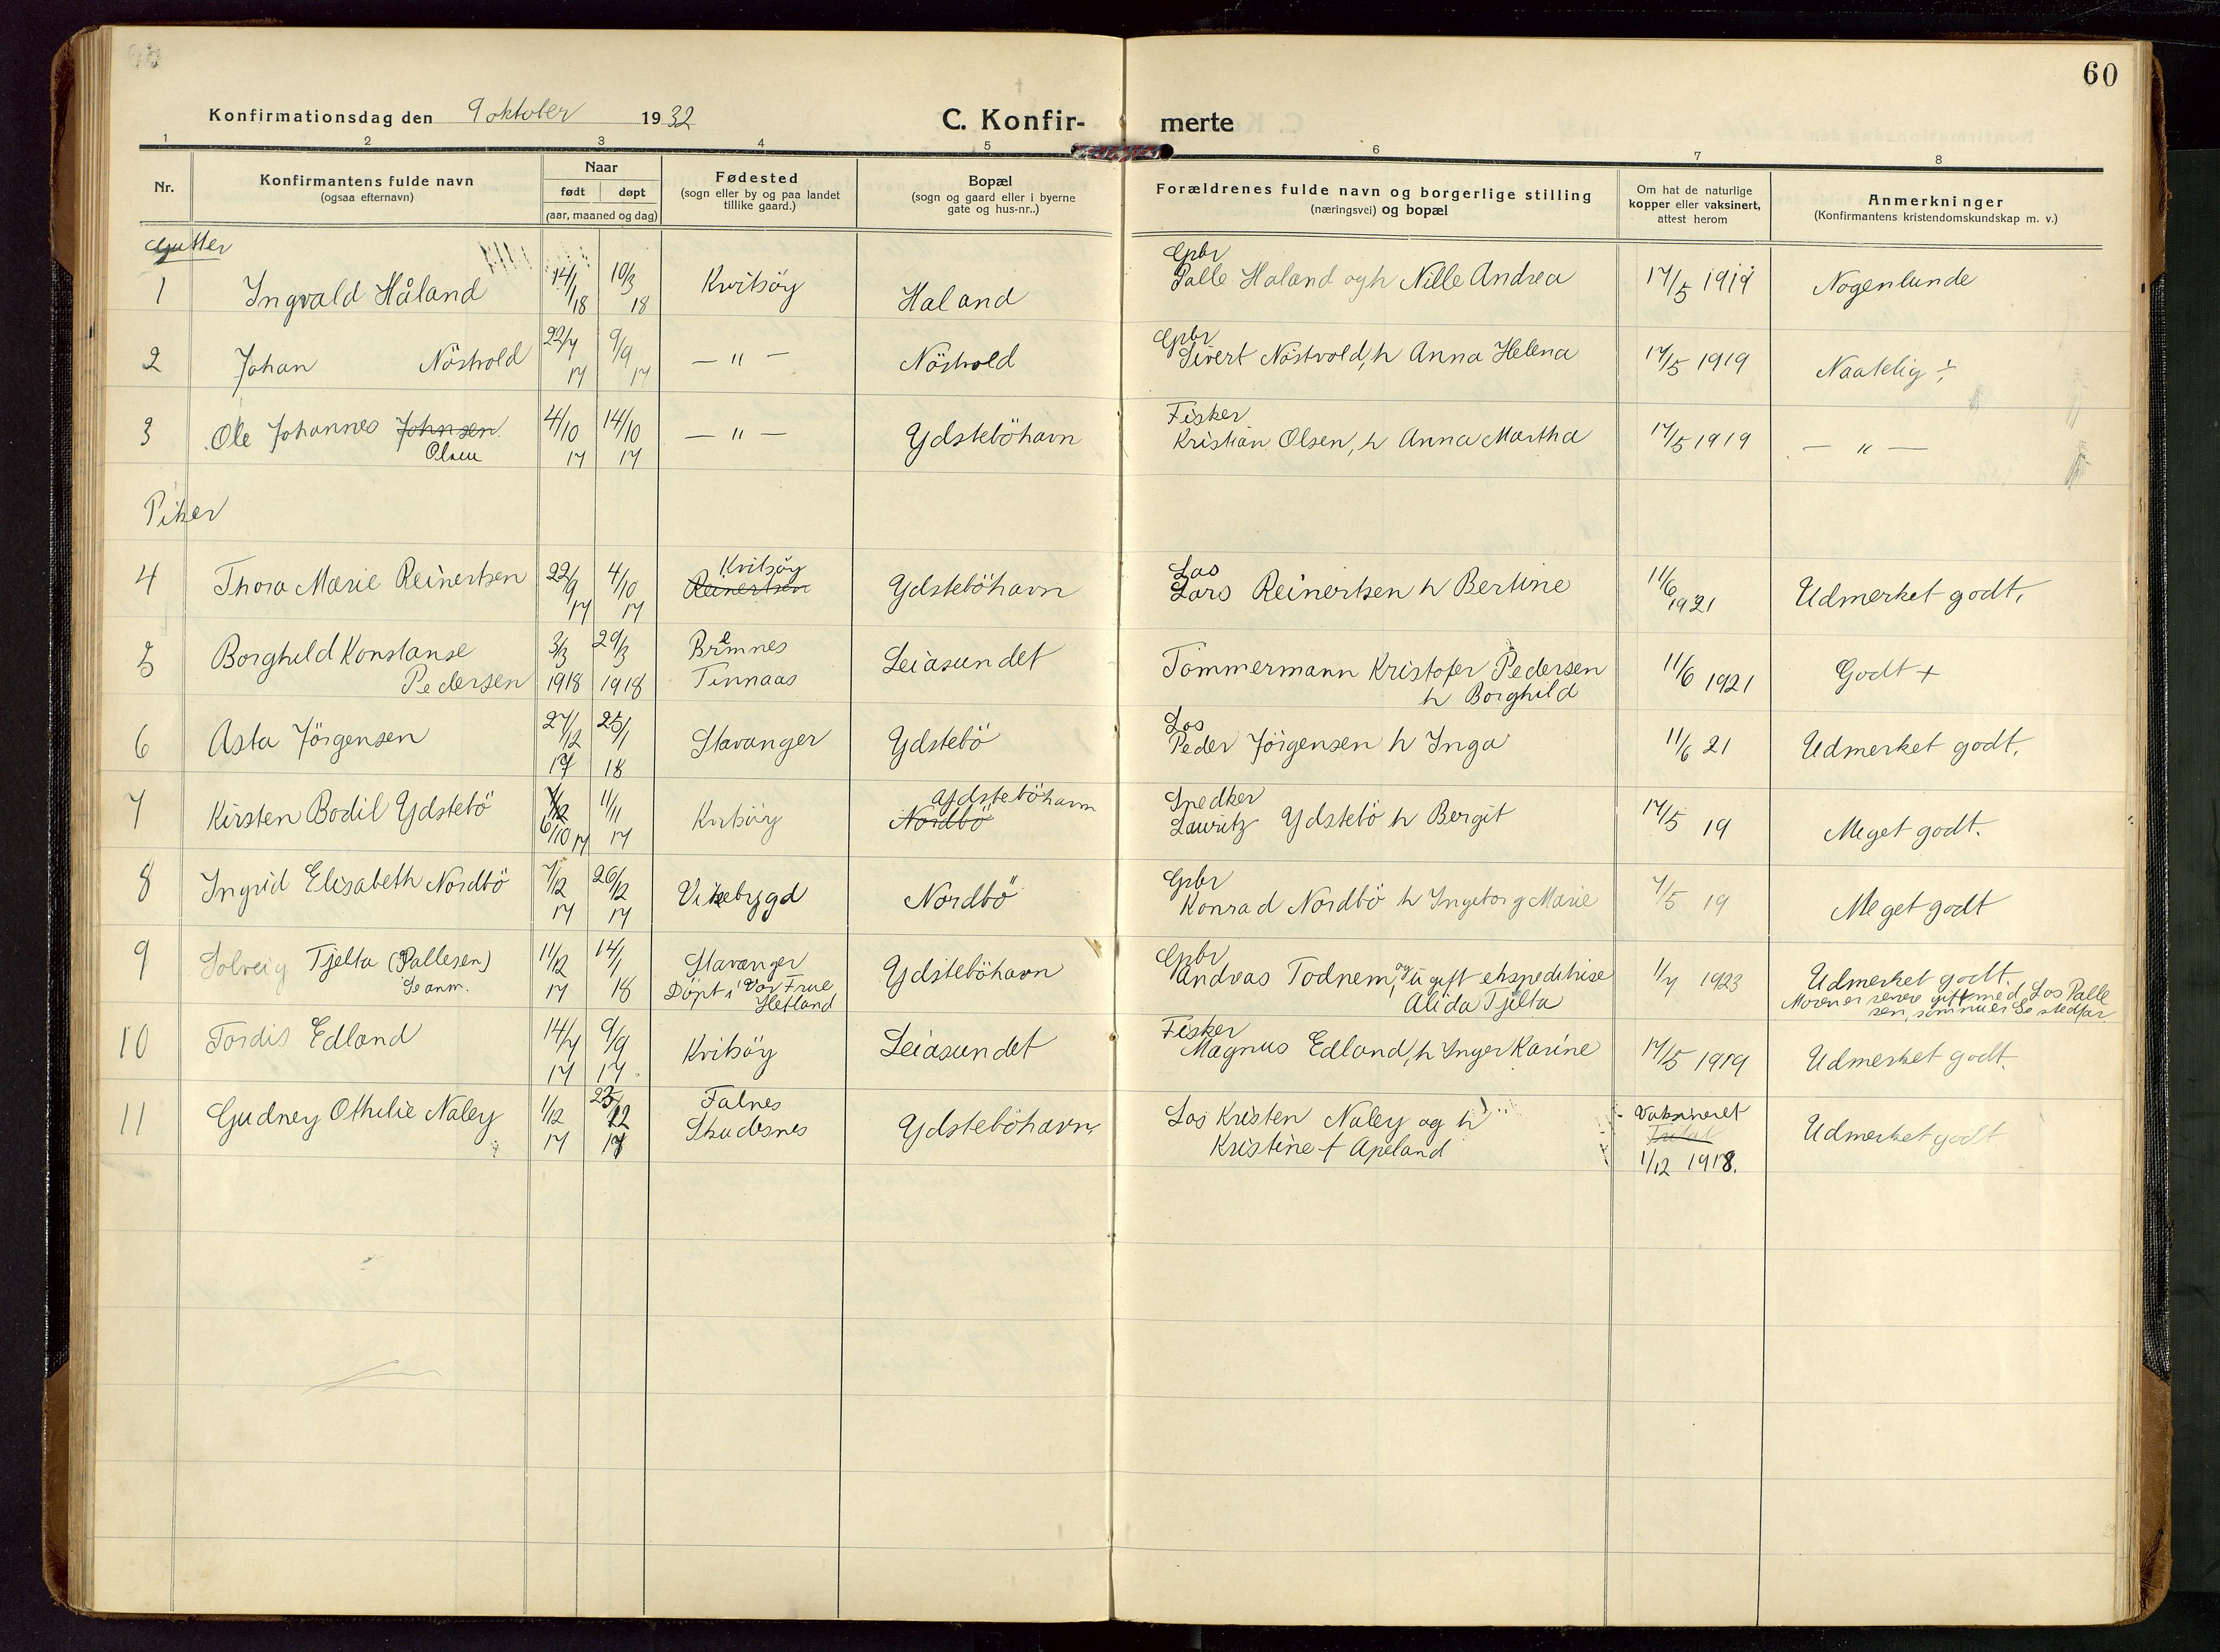 60
Konfirmationsdag den 9 oktober 1932
C. Konfir- merte
1 2 3 4 5 6 7 8
Nr.
Konfirmantens fulde navn
(ogsaa efternavn)
Naar
født døpt
(aar, maaned og dag)
Fødested
(sogn eller by og paa landet
tillike gaard.)
Bopæl
(sogn og gaard eller i byerne
gate og hus-nr..)
Forældrenes fulde navn og borgerlige stilling
(næringsvei) og bopæl
Om hat de naturlige
kopper eller vaksinert,
attest herom
Anmerkninger
(Konfirmantens kristendomskundskap m. v.)
Gutter
1 Ingvald Håland 14/1 18 10/3 18 Kvitsöy Haland Gpbr Palle Haland og h Nille Andrea 17/5 1919 Nogenlunde
2 Johan Nöstvold 22/7 17 9/9 17 — " — Nöstvold Gpbr Sivert Nöstvold, h Anna Helena 17/5 1919 Naatelig ÷
3 Ole Johannes Johnsen Olsen 4/10 17 14/10 17 — " — Ydsteböhavn Fisker Kristian Olsen, h Anna Martha 17/5 1919 — " —
Piker
4 Thora Marie Reinertsen 22/9 17 4/10 17 Kvitsöy Reinertsen Ydsteböhavn Los Lars Reinertsen h Bertine 11/6 1921 Udmerket godt.
5 Borghild Konstanse Pedersen 3/3 1918 29/3 1918 Bremnes Finnaas Leiasundet Tömmermann Kristofer Pedersen h Borghild 11/6 1921 Godt +
6 Asta Jörgensen 27/12 17 25/1 18 Stavanger Ydstebö Los Peder Jörgensen h Inga 11/6 21 Udmerket godt.
7 Kirsten Bodil Ydstebö 6/10 17 11/11 17 Kvitsöy Ydsteböhavn Nordbö Snedker Lauritz Ydstebö h Bergit 17/5 19 Meget godt.
8 Ingrid Elisabeth Nordbö 7/12 17 26/12 17 Vikebygd Nordbö Gpbr Konrad Nordbö h Ingeborg Marie 7/5 19 Meget godt
9 Solveig Tjelta (Pallesen) Se anm. 11/12 17 14/1 18 Stavanger Döpt i Vor Frue Hetland Ydsteböhavn Gpbr Andreas Todnem, og ugift ekspeditrise Alida Tjelta 1/7 1923 Udmerket godt. Moren er senere gift med Los Pallesen, som nu er So stedfar
10 Tordis Edland 14/7 17 9/9 17 Kvitsöy Leiasundet Fisker Magnus Edland, h Inger Karine 17/5 1919 Udmerket godt.
11 Gudney Othilie Naley 1/12 17 23/12 17 Falnes Skudesnes Ydsteböhavn Los Kristen Naley og h Kristine f Apeland Vaksineret 1/12 1918. Udmerket godt